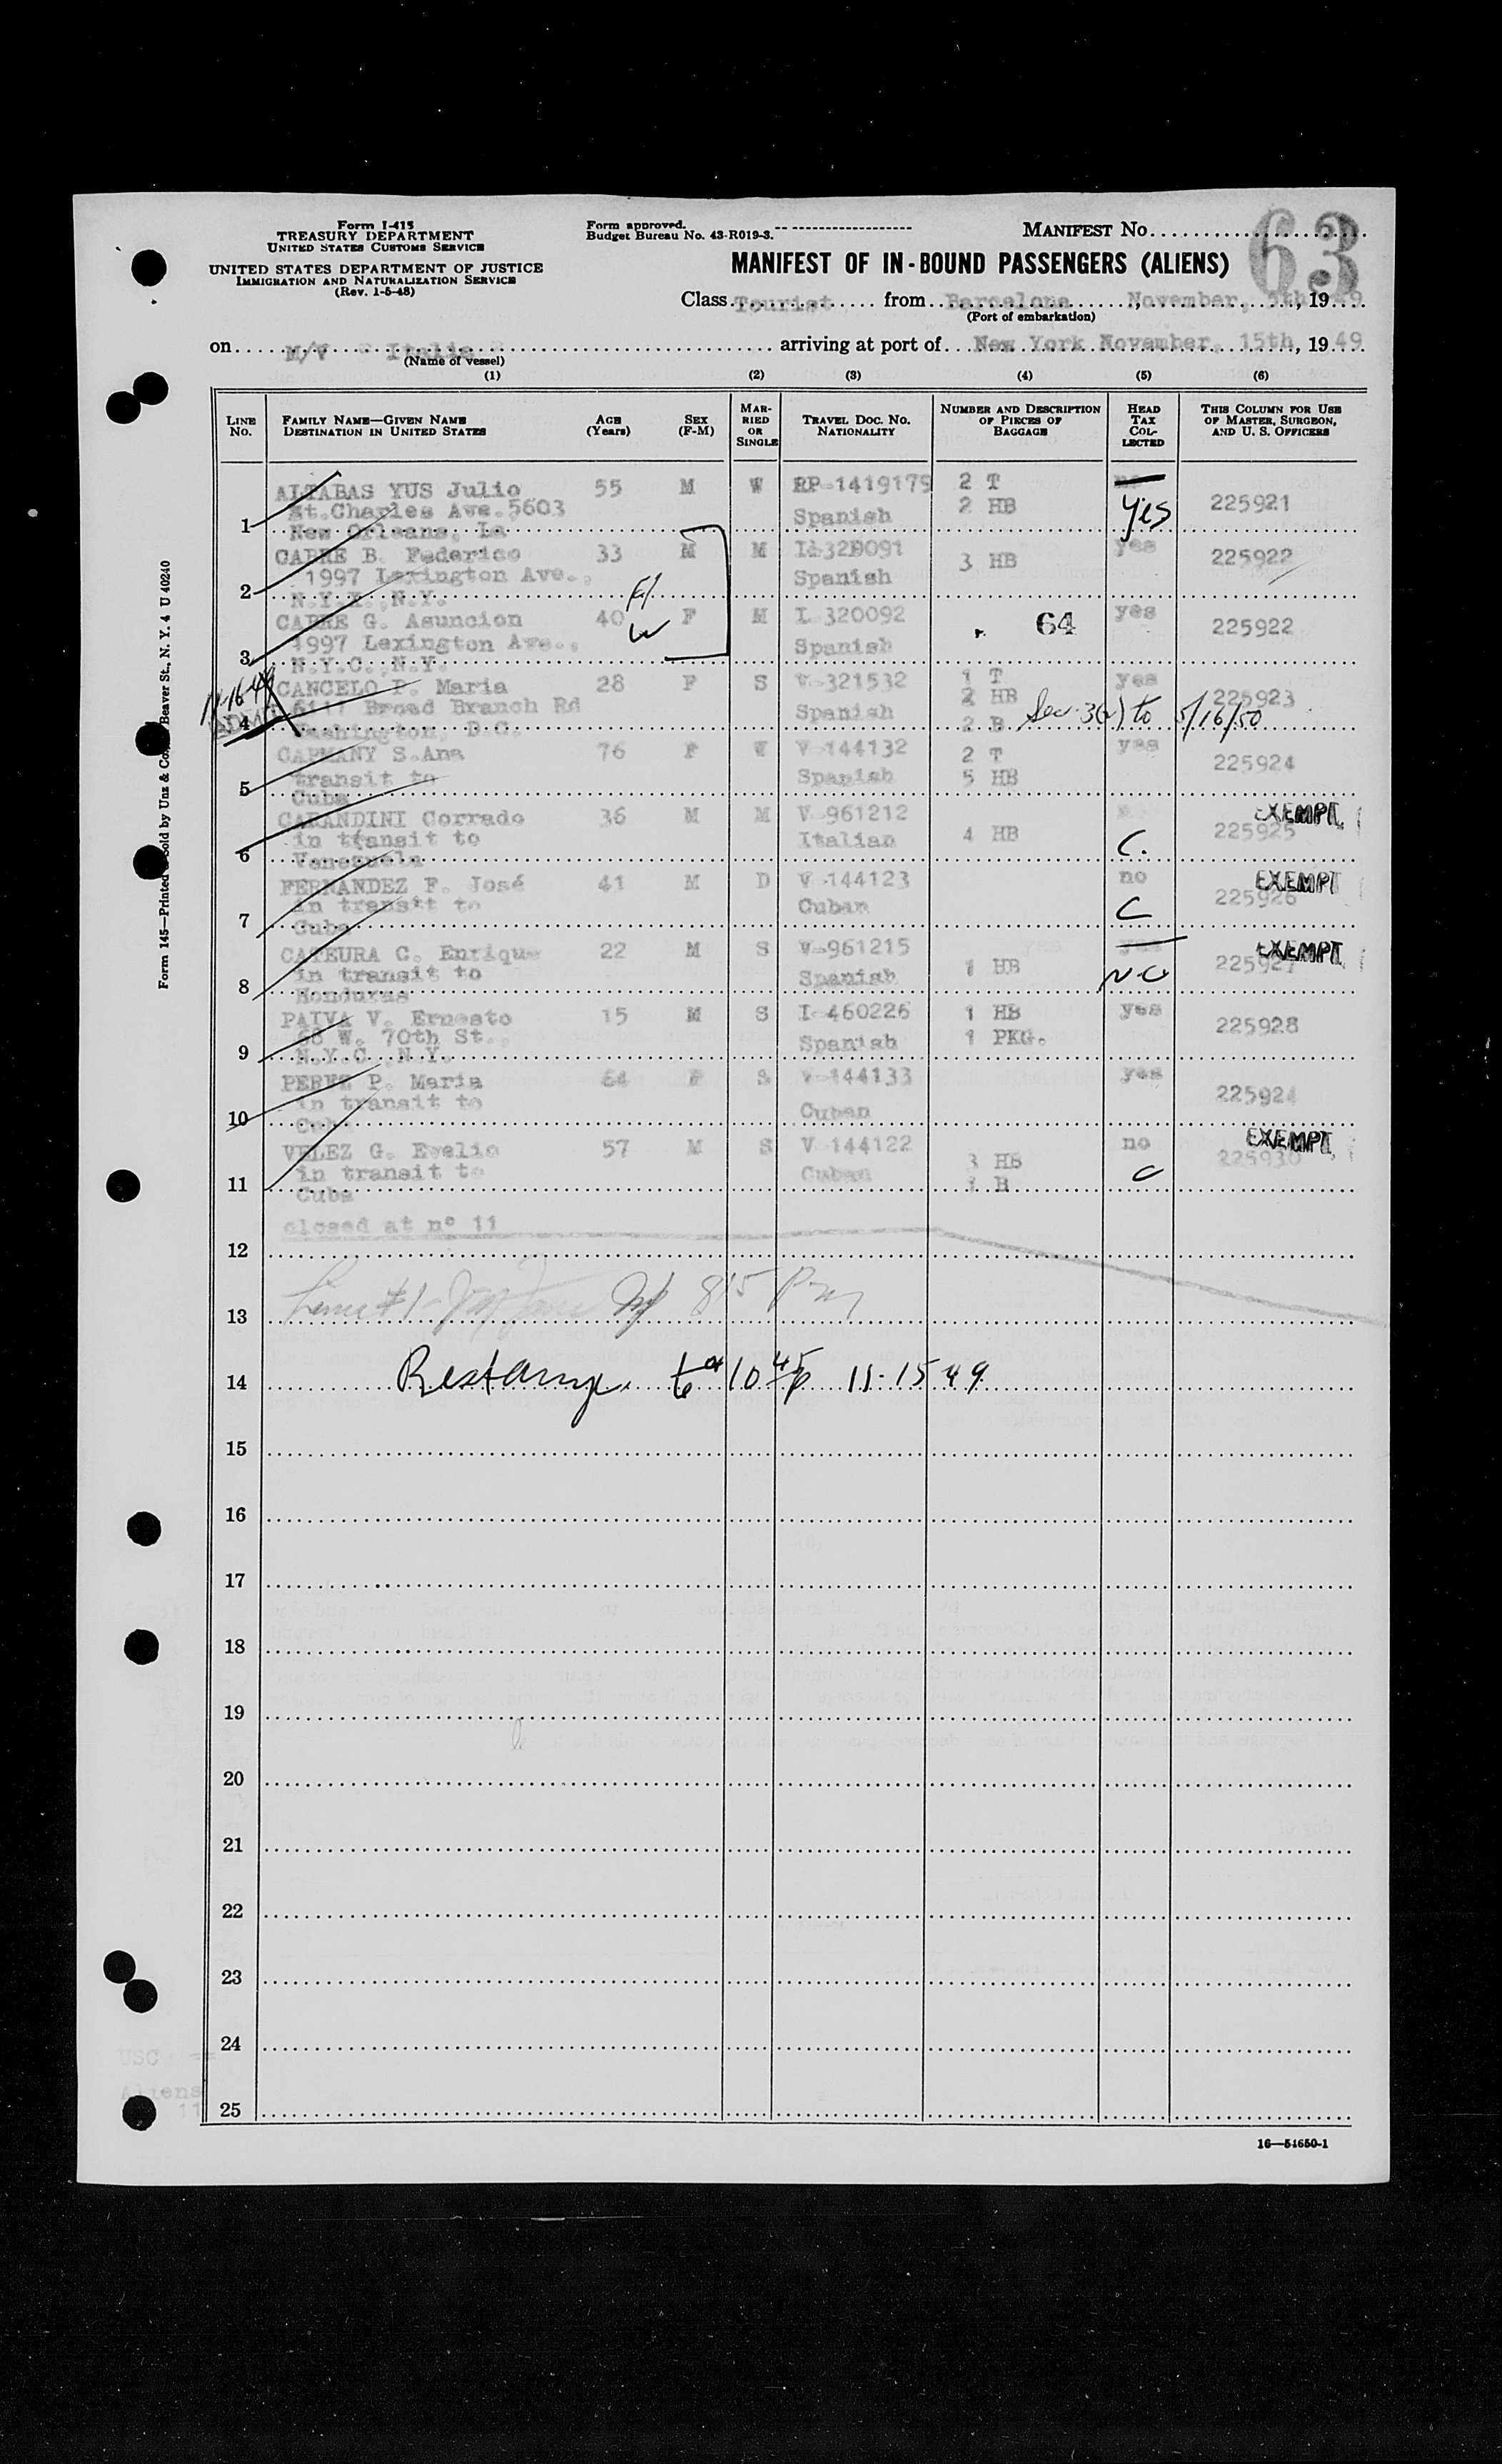 Form I-415
TREASURY DEPARTMENT
UNITED STATES CUSTOMS SERVICE
UNITED STATES DEPARTMENT OF JUSTICE
IMMIGRATION AND NATURALIZATION SERVICE
(Rev. 1-5-48)
Form approved.
Budget Bureau No. 43-R019-3.
MANIFEST NO.
63
MANIFEST OF IN-BOUND PASSENGERS (ALIENS)
Class Tourist from Barcelona, November, 5th, 1949
(Port of embarkation)
on M/V Italia arriving at port of New York November, 15th, 1949
(Name of vessel)
(1) (2) (3) (4) (5) (6)
LINE NO. FAMILY NAME—GIVEN NAME DESTINATION IN UNITED STATES AGE (Years) SEX (F-M) MARRIED OR SINGLE TRAVEL DOC. NO. NATIONALITY NUMBER AND DESCRIPTION OF PIECES OF BAGGAGE HEAD TAX COLLECTED THIS COLUMN FOR USE OF MASTER, SURGEON, AND U. S. OFFICERS
ALTABAS YUS Julio 55 M W RP-1419175 2 T
St.Charles Ave.5603 Spanish 2 HB yes 225921
1 New Orleans, La
CABRE B. Federico 33 M M 3 HB yes 225922
1997 Lexington Ave., Spanish
2 N.Y.C., N.Y.
CABRE G. Asuncion 40 F M I-320092 64 yes 225922
1997 Lexington Ave., Spanish
3 N.Y.C., N.Y.
11-16-49
CANCELO P. Maria 28 F S V-321532 1 T yes 225923
6111 Broad Branch Rd Spanish 2 HB
4 Washington, D.C. 2 B Sec 3(2) to 5/16/50
CARMANY S.Ana 76 F W V-144132 2 T yes 225924
transit to Spanish 5 HB
5 Cuba
CARANDINI Corrado 36 M M V-961212 EXEMPT
in transit to Italian 4 HB C. 225925
6 Venezuela
FERNANDEZ F. José 41 M D V-144123 no EXEMPT
in transit to Cuban C 225926
7 Cuba
CATEURA C. Enrique 22 M S V-961215 EXEMPT
in transit to Spanish 1 HB NO 225927
8 Honduras
PAIVA V. Ernesto 15 M S I-460226 1 HB yes 225928
68 W. 70th St., Spanish 1 PKG.
9 N.Y.C., N.Y.
PEREZ P. Maria 64 F S V-144133 yes 225924
in transit to Cuban
10 Cuba
VELEZ G. Evelio 57 M S V-144122 no EXEMPT
in transit to Cuban 3 HB C 225930
11 Cuba 1 B
closed at nº 11
12
13 Line #1- 815 Pm
14 11-15-49
15
16
17
18
19
20
21
22
23
24
25
USC
Aliens
11
16—54650-1
Form 145—Printed Sold by Unz & Co., Beaver St., N. Y. 4 U 40240